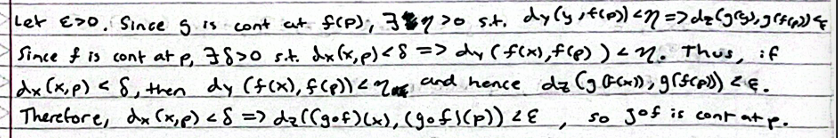 Let ε>0. Since g is cont at f(p), ∃ η>0 s.t. dy(y,f(p))<η => dz(g(y),g(f(p))<ε
Since f is cont at p, ∃δ>0 s.t. dx(x,p)<δ => dy(f(x),f(p))<η. Thus, if
dx(x,p)<δ, then dy(f(x),f(p))<η and hence dz(g(f(x)),g(f(p))<ε.
Therefore, dx(x,p)<δ => dz((g∘f)(x),(g∘f)(p))<ε, so g∘f is cont at p.